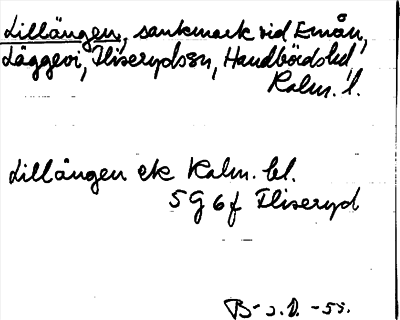 Lillängen, sankmark vid Emån,
Läggevi, Fliseryds sn, Handbörds hd,
Kalm. l.
Lillängen ek Kalm. bl.
5 G 6 f Fliseryd